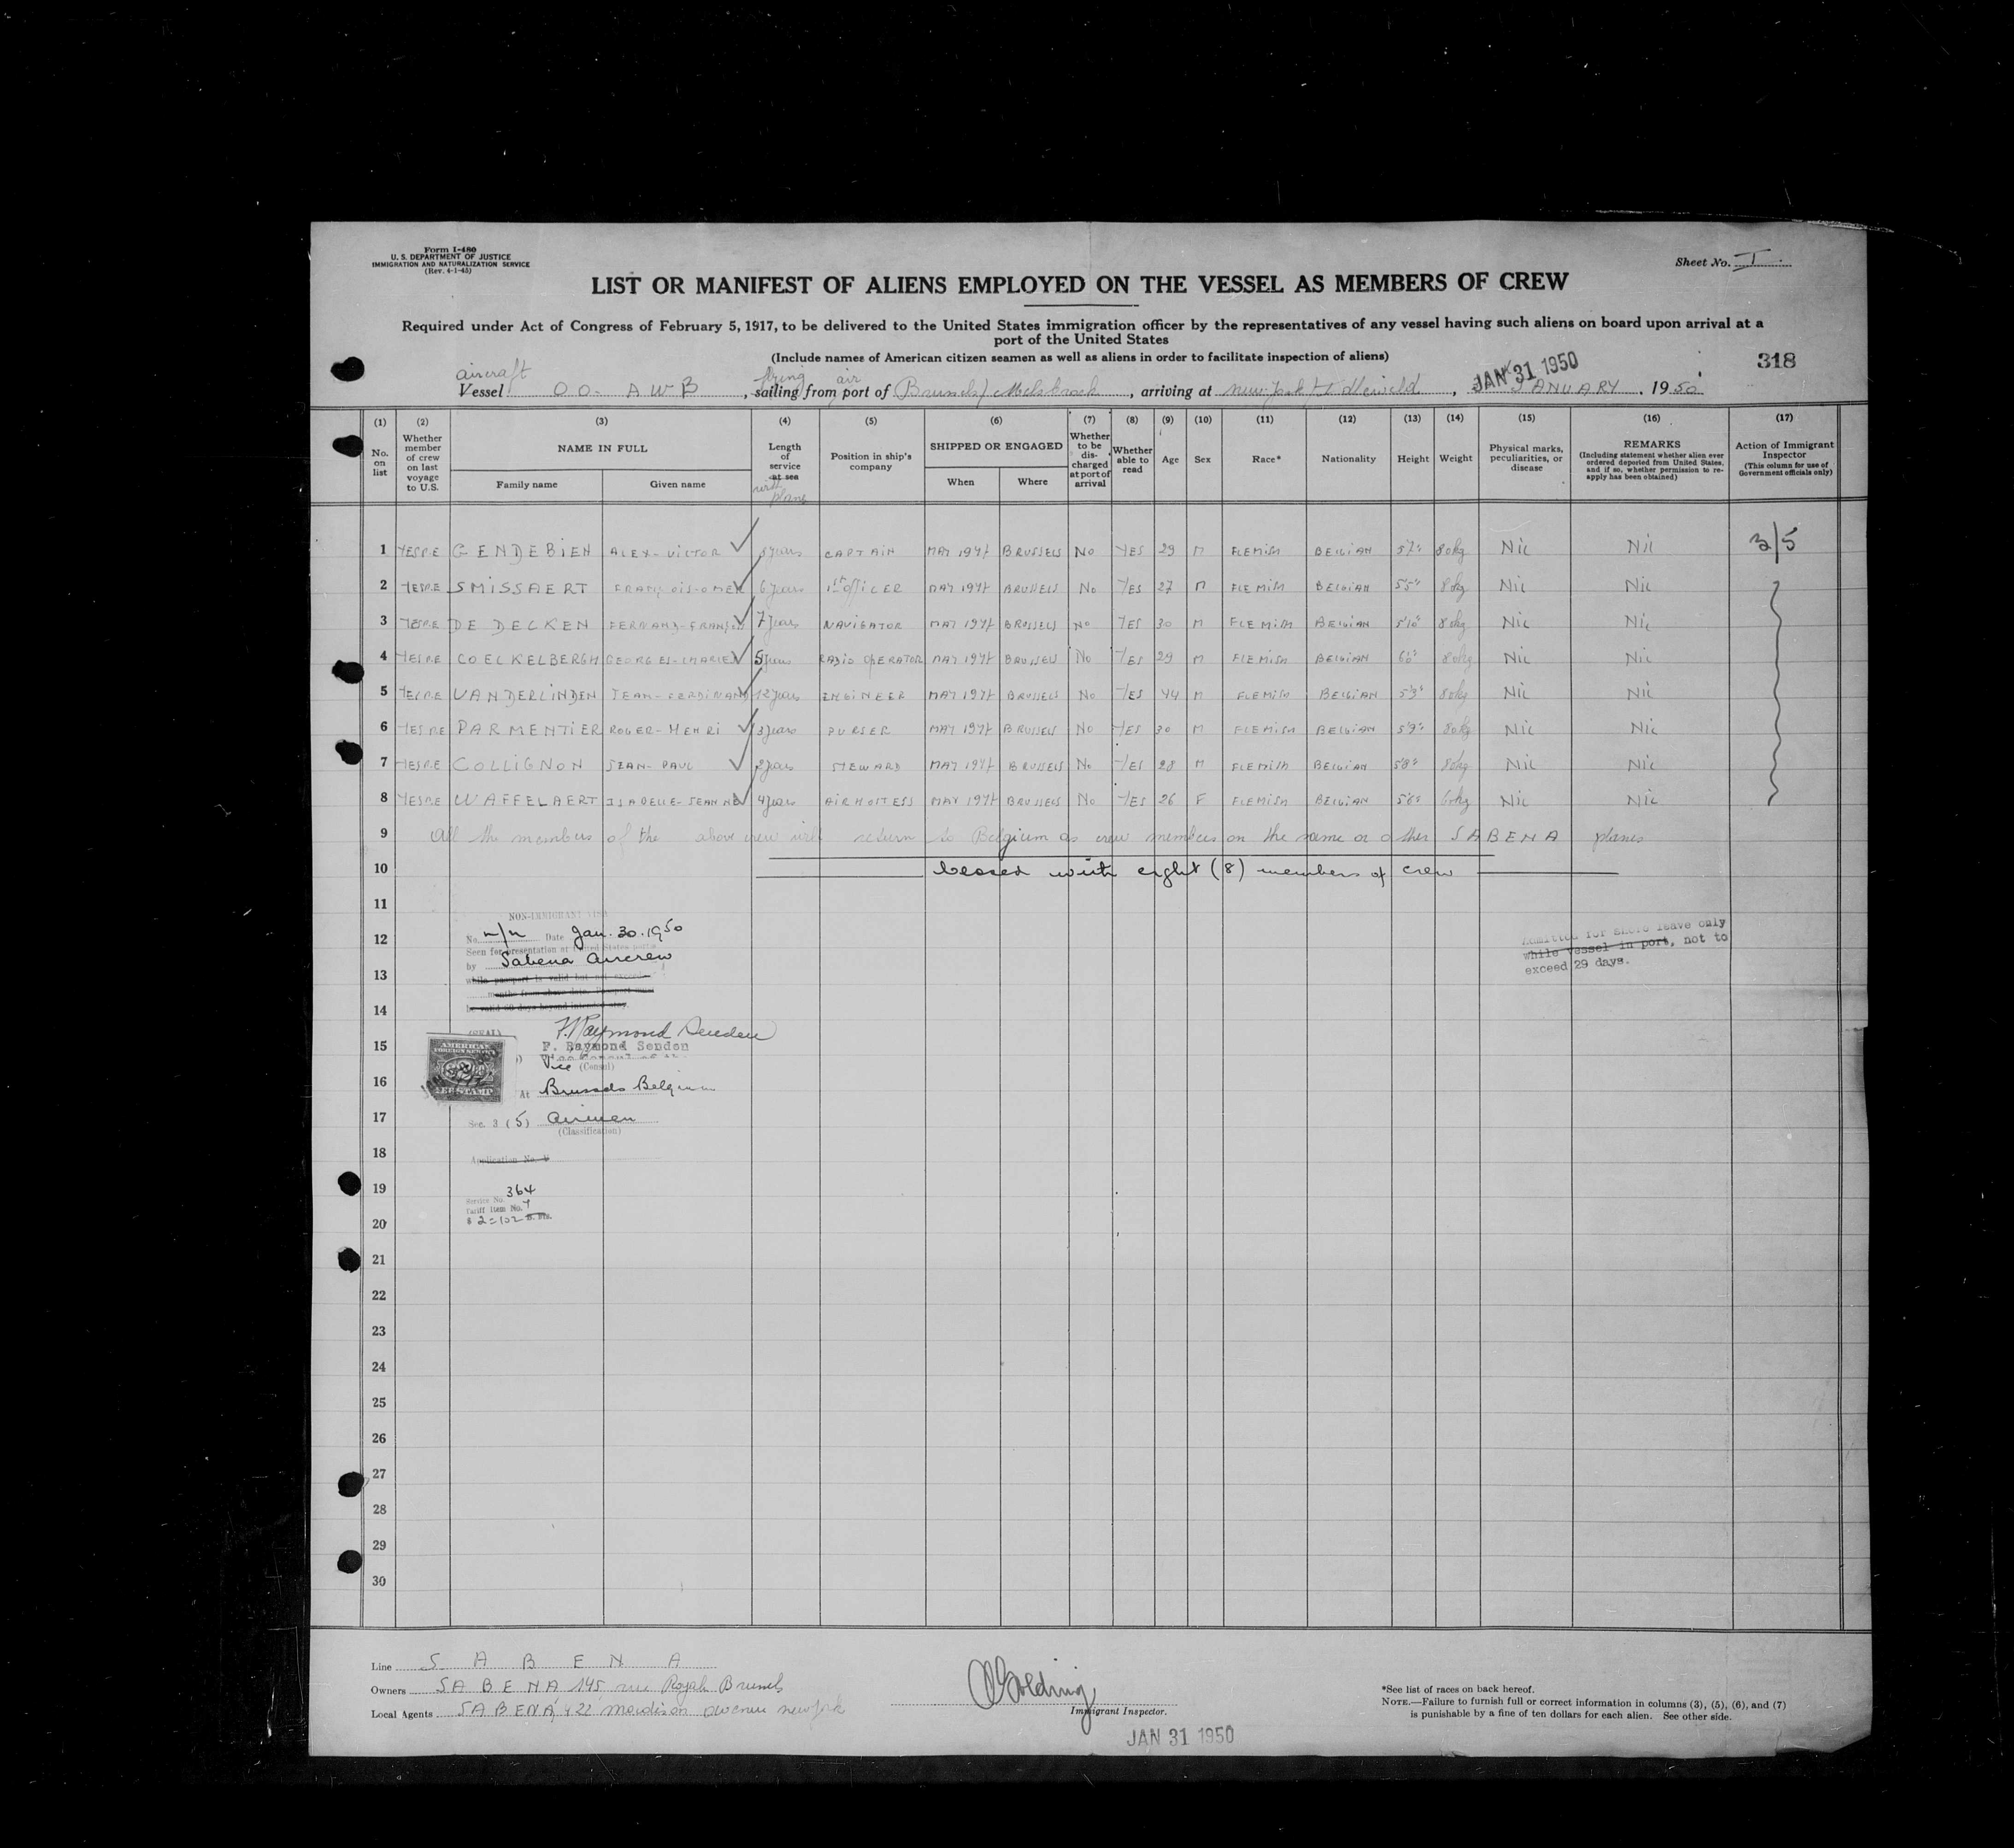 Form I-480
U. S. DEPARTMENT OF JUSTICE
IMMIGRATION AND NATURALIZATION SERVICE
(Rev. 4-1-45)
Sheet No. I
LIST OR MANIFEST OF ALIENS EMPLOYED ON THE VESSEL AS MEMBERS OF CREW
Required under Act of Congress of February 5, 1917, to be delivered to the United States immigration officer by the representatives of any vessel having such aliens on board upon arrival at a
port of the United States
(Include names of American citizen seamen as well as aliens in order to facilitate inspection of aliens)
318
aircraft
Vessel OO-AWB, sailing from air port of Brussels/Melsbroek, arriving at New York/Idlewild, JANUARY, 1950
JAN 31 1950
(1) (2) (3) (4) (5) (6) (7) (8) (9) (10) (11) (12) (13) (14) (15) (16) (17)
No. on list
Whether member of crew on last voyage to U.S.
NAME IN FULL
Family name Given name
Length of service at sea
with plane
Position in ship's company
SHIPPED OR ENGAGED
When Where
Whether to be discharged at port of arrival
Whether able to read
Age
Sex
Race*
Nationality
Height
Weight
Physical marks, peculiarities, or disease
REMARKS
(Including statement whether alien ever ordered deported from United States, and if so, whether permission to reapply has been obtained)
Action of Immigrant Inspector
(This column for use of Government officials only)
1 GENDEBIEN ALEX-VICTOR years CAPTAIN MAY BRUSSELS No YES 29 M FLEMISH BELGIAN 5'7" 80kg Nil Nil 3/5
2 SMISSAERT FRANÇOIS-OMER 6 years 1st OFFICER MAY BRUSSELS No YES 27 M FLEMISH BELGIAN 5'5" 80kg Nil Nil
3 DE DECKEN FERNAND-FRANS 7 years NAVIGATOR MAY BRUSSELS No YES 30 M FLEMISH BELGIAN 5'10" 80kg Nil Nil
4 COECKELBERGH GEORGES-CHARLES 5 years RADIO OPERATOR MAY BRUSSELS No YES 29 M FLEMISH BELGIAN 6'0" 80kg Nil Nil
5 VANDERLINDEN JEAN-FERDINAND 12 years ENGINEER MAY BRUSSELS No YES 44 M FLEMISH BELGIAN 5'3" 80kg Nil Nil
6 PARMENTIER ROGER-HENRI 3 years PURSER MAY BRUSSELS No YES 30 M FLEMISH BELGIAN 5'9" 80kg Nil Nil
7 COLLIGNON JEAN-PAUL 2 years STEWARD MAY BRUSSELS No YES 28 M FLEMISH BELGIAN 5'8" 80kg Nil Nil
8 WAFFELAERT ISABELLE-JEANNE 4 years AIR HOSTESS MAY BRUSSELS No YES 26 F FLEMISH BELGIAN 5'6" 60kg Nil Nil
9 All the members of the above crew will return to Belgium as crew members on the same or other SABENA planes
10 closed with eight (8) members of crew
11
12
13
14
15
16
17
18
19
20
21
22
23
24
25
26
27
28
29
30
NON-IMMIGRANT VISA
No. n/n Date Jan. 30. 1950
Seen for presentation at United States ports
by Sabena Aircrew
while passport is valid but not exceed
months from above date. Passport must
be valid 60 days beyond intended stay.
(SEAL)
F. Raymond Senden
F. Raymond Senden
Vice (Consul)
AMERICAN
FOREIGN SERVICE
FEE STAMP
At Brussels Belgium
Sec. 3 (5) Airmen
(Classification)
Application No. V
Service No. 364
Tariff Item No. 7
$ 2=102 B. Frs.
Admitted for shore leave only
while vessel in port, not to
exceed 29 days.
Line SABENA
Owners SABENA 145 rue Royale Brussels
Local Agents SABENA, 422 Madison avenue New York
Golding
Immigrant Inspector.
JAN 31 1950
*See list of races on back hereof.
NOTE.—Failure to furnish full or correct information in columns (3), (5), (6), and (7)
is punishable by a fine of ten dollars for each alien. See other side.